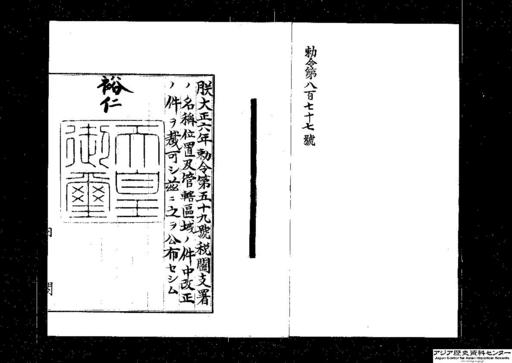 勅令第八百七十七號
朕大正六年勅令第五十九號税關支署
ノ名稱位置及管轄區域ノ件中改正
ノ件ヲ裁可シ茲ニ之ヲ公布セシム
裕仁
天皇
御璽
内 閣
アジア歴史資料センター
Japan Center for Asian Historical Records